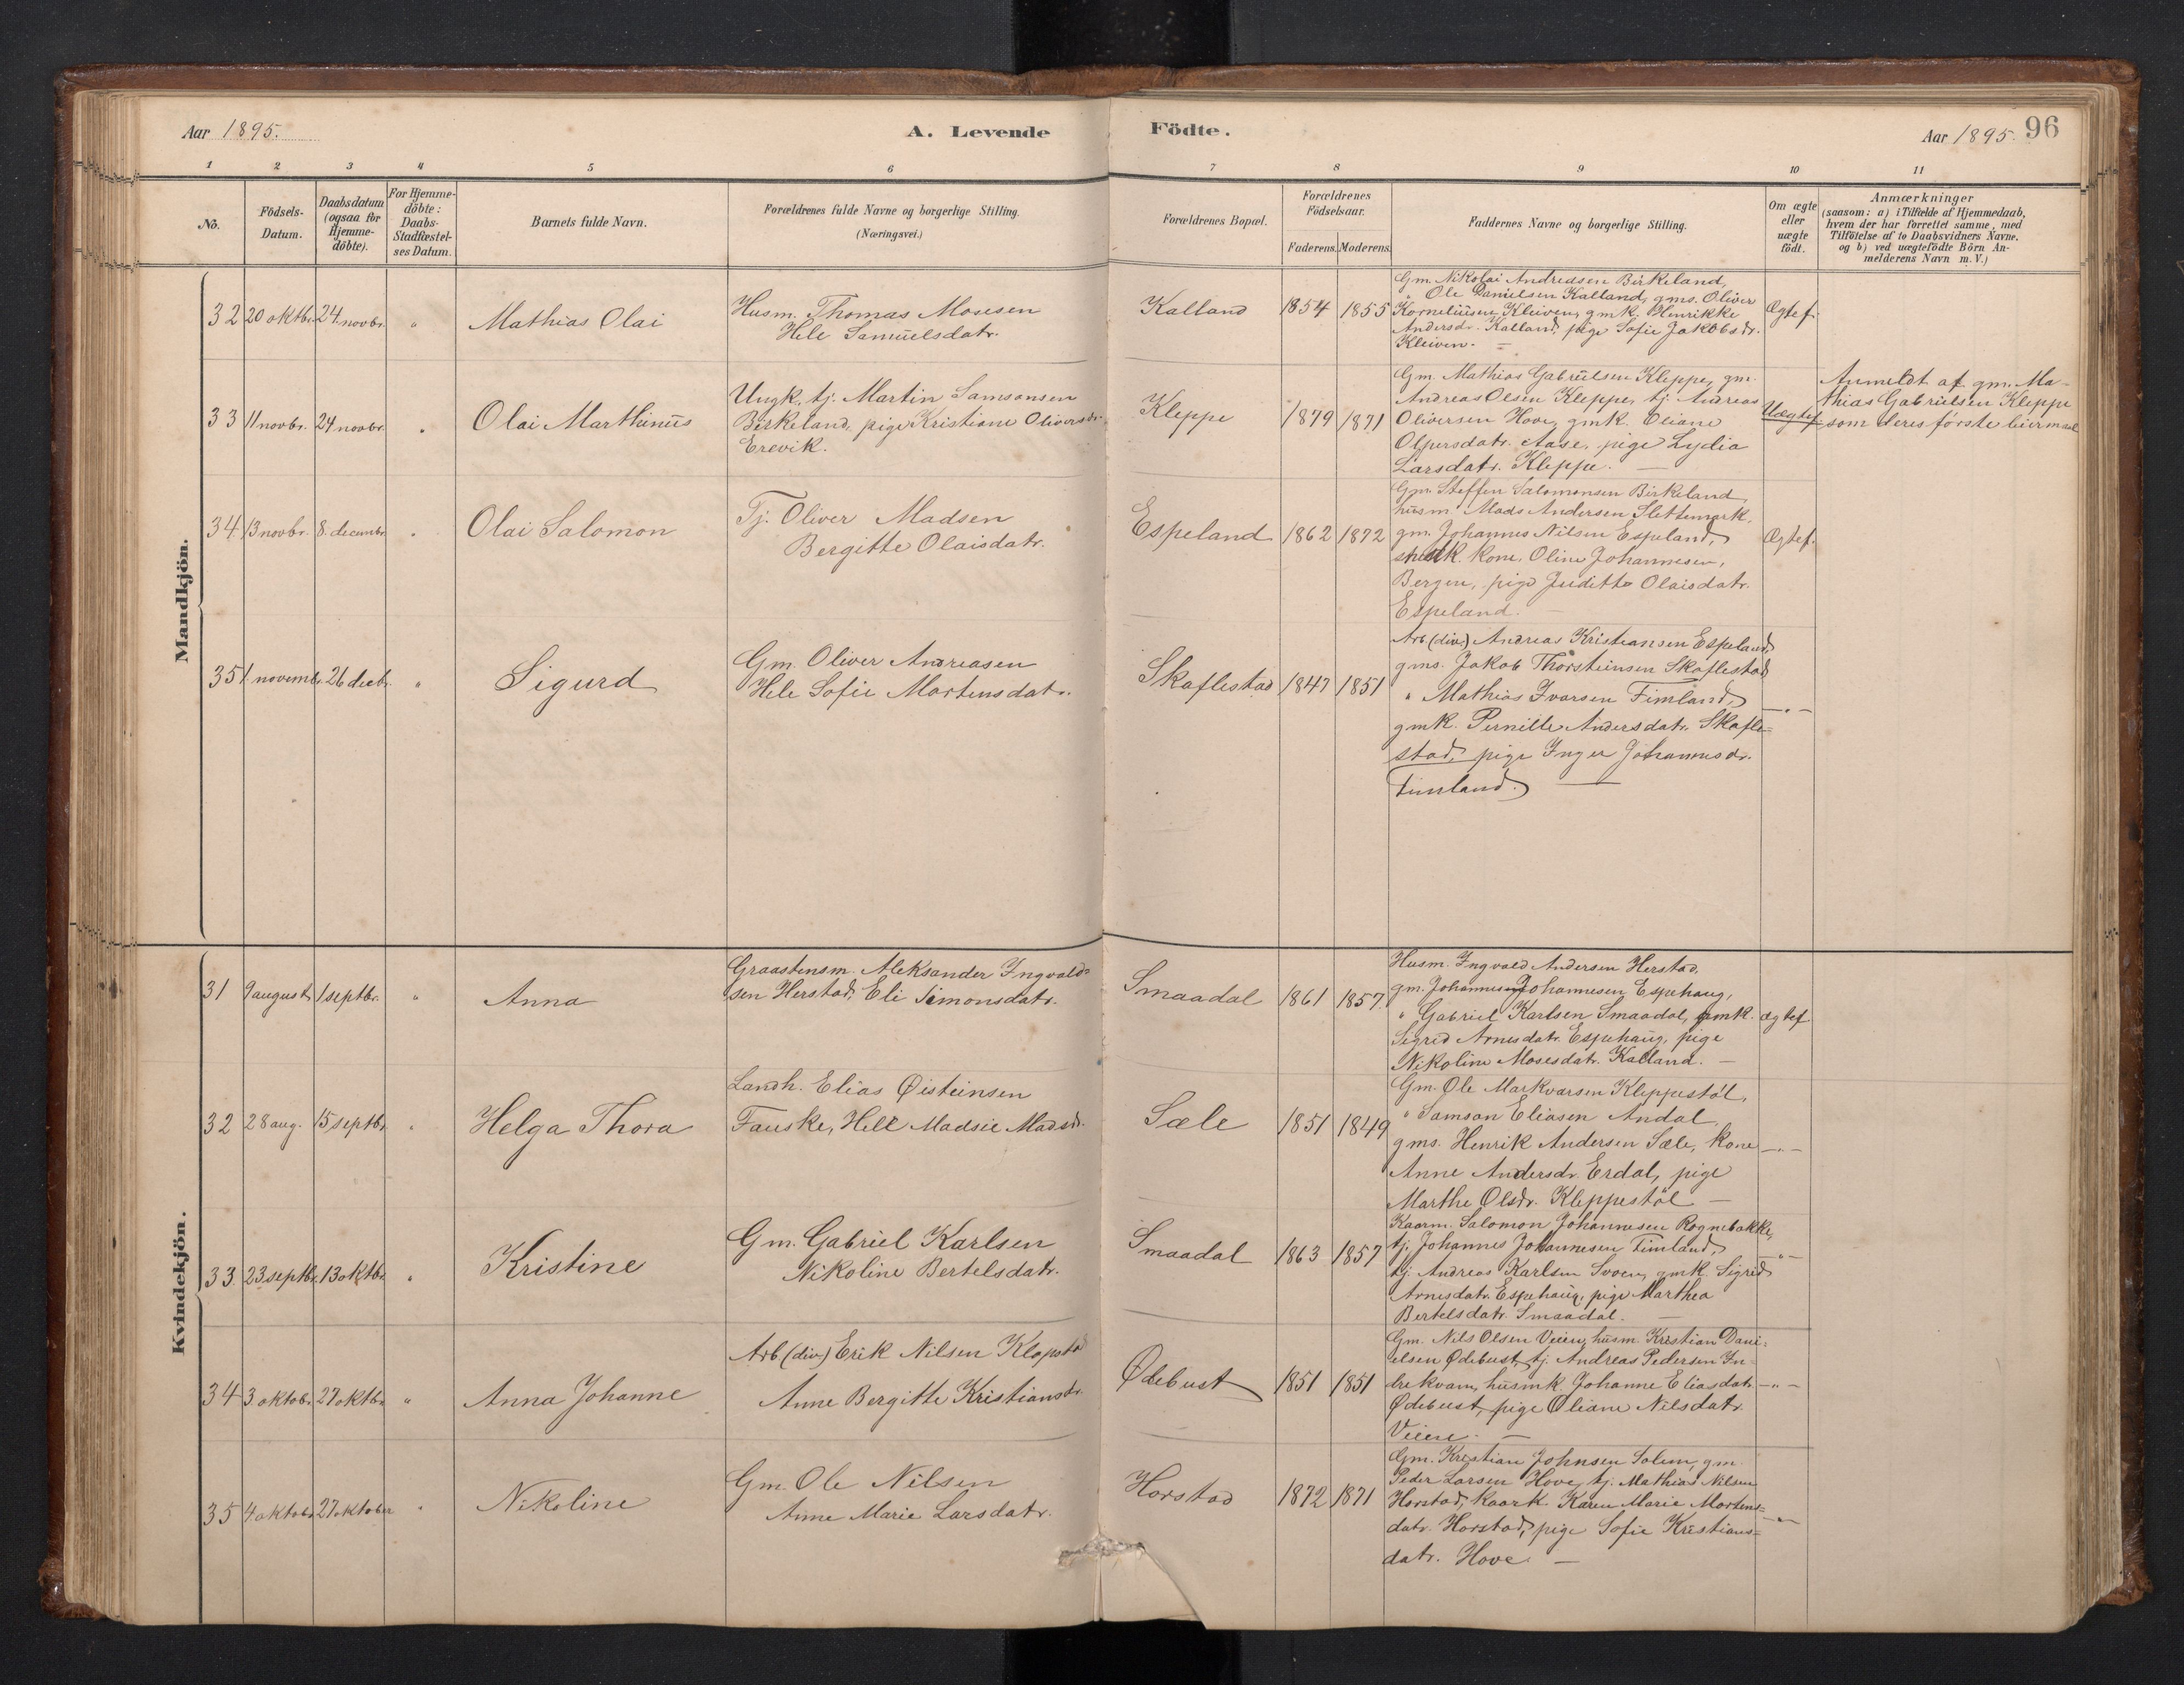 Aar 1895.
A. Levende
Födte.
Aar 1895.
96
1 2 3 4 5 6 7 8 9 10 11
No.
Födsels-
Datum.
Daabsdatum
(ogsaa for
Hjemme-
döbte).
For Hjemme-
döbte:
Daabs-
Stadfæstel-
ses Datum.
Barnets fulde Navn.
Forældrenes fulde Navne og borgerlige Stilling.
(Næringsvei.)
Forældrenes Bopæl.
Forældrenes
Födselsaar.
Faderens. Moderens.
Faddernes Navne og borgerlige Stilling.
Om ægte
eller
uægte
födt.
Anmærkninger
(saasom: a) i Tilfælde af Hjemmedaab,
hvem der har forrettet samme, med
Tilföielse af to Daabsvidners Navne.
og b) ved uægtefödte Börn An-
melderens Navn m. V.)
Mandkjön.
32 20 oktbr. 24. novbr. "
Mathias Olai
Husm. Thomas Mosesen
Hele Samuelsdatr.
Kalland 1854 1855
Gm. Nikolai Andreasen Birkeland,
" Ole Danielsen Kalland, gms. Oliver
Korneliusen Kleiven, gmk. Henrikke
Andersdr. Kalland, pige Sofie Jakobsdr.
Kleiven. —
Ægtef.
33 11 novbr. 24 novbr. "
Olai Marthinus
Ungk. tj. Martin Samsonsen
Birkeland, pige Kristiane Oliversdr.
Erevik.
Kleppe 1879 1871
Gm. Mathias Gabrielsen Kleppe, gm.
Andreas Olsen Kleppe, tj. Andreas
Oliversen Hove, gmk. Oliane
Olpersdatr. Aase, pige Lydia
Larsdatr. Kleppe. —
Uægtef.
Anmeldt af gm. Ma-
thias Gabrielsen Kleppe
som deres første leiermaal
34 13 novbr. 8. decembr. "
Olai Salomon
Tj. Oliver Madsen
Bergitte Olaisdatr.
Espeland 1862 1872
Gm. Steffen Salomonsen Birkeland,
husm. Mads Andersen Slettemark,
gm. Johannes Nilsen Espeland,
snedk. kone, Oline Johannesen,
Bergen, pige Juditte Olaisdatr.
Espeland. —
Ægtef.
35 1 novembr. 26 decbr. "
Sigurd
Gm. Oliver Andreasen
Hele Sofie Mortensdatr.
Skaflestad 1847 1851
Arb (div.) Andreas Kristiansen Espeland,
gms. Jakob Thorsteinsen Skaflestad
" Mathias Ivarsen Timland,
gmk. Pernille Andersdatr. Skafle-
stad, pige Inger Johannesdr.
Timland. —
— " —
Kvindekjön.
31 9 august 1 septbr. "
Anna
Graastensm. Aleksander Ingvald-
sen Herstad, Eli Simonsdatr.
Smaadal 1861 1857.
Husm. Ingvald Andersen Herstad,
gm. Johannes Johannesen Espehaug,
" Gabriel Karlsen Smaadal, gmk.
Sigrid Arnesdatr. Espehaug, pige
Nikoline Mosesdatr. Kalland. —
ægtef.
32 28 aug. 15 septbr. "
Helga Thora
Landh. Elias Øisteinsen
Fauske, Hele Madsie Madsd.
Sæle 1851 1849
Gm. Ole Markvarsen Kleppestøl,
" Samson Eliasen Andal,
gms. Henrik Andersen Sæle, kone
Anne Andersdr. Erdal, pige
Marthe Olsdr. Kleppestøl —
— " —
33 23. septbr. 13 oktbr. "
Kristine
Gm. Gabriel Karlsen
Nikoline Bertelsdatr.
Smaadal 1863 1857
Kaarm. Salomon Johannesen Rognebakke,
tj. Johannes Johannesen Timland,
tj. Andreas Karlsen Svoen, gmk. Sigrid
Arnesdatr. Espehaug, pige Marthea
Bertelsdatr. Smaadal. —
— " —
34 3. oktobr. 27 oktbr. "
Anna Johanne
Arb (div.) Erik Nilsen Klopstad
Anne Bergitte Kristiansdr.
Ødebust 1851 1851
Gm. Nils Olsen Veien, husm. Kristian Dani-
elsen Ødebust, tj. Andreas Pedersen In-
drekvam, husmk. Johanne Eliasdatr.
Ødebust, pige Oliane Nilsdatr.
Veien. —
— " —
35 4 oktobr. 27 oktober "
Nikoline
Gm. Ole Nilsen
Anne Marie Larsdatr.
Horstad 1872 1871
Gm. Kristian Johnsen Solem, gm.
Peder Larsen Hove, tj. Mathias Nilsen
Horstad, kaark. Karen Marie Mortens-
datr. Horstad, pige Sofie Kristians-
datr. Hove. —
— " —